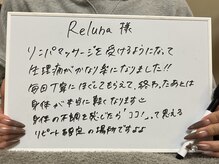 Reluna 様
リンパマッサージを受けるようになって
生理痛がかなり楽になりました!!
毎回丁寧にほぐしてもらえて、終わったあとは
身体が本当に軽くなります
身体の不調を感じたら"ココ!"って思える
リピート確定の場所ですよ